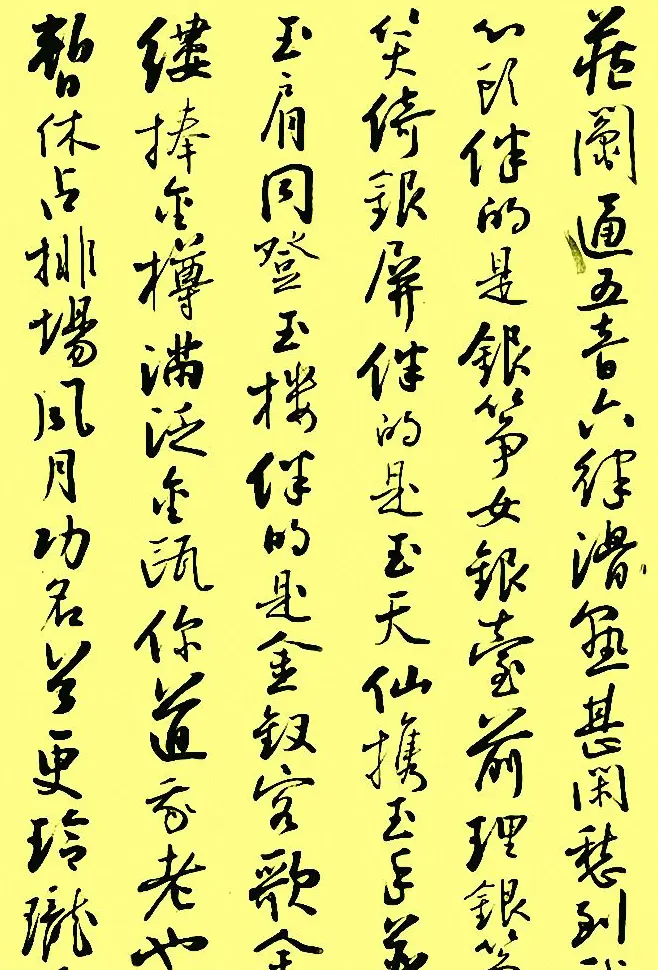 藏鬮通五音六律滑熟甚閑愁到
心頭伴的是銀箏女銀臺前理銀箏
笑倚銀屏伴的是玉天仙携玉手並
玉肩同登玉樓伴的是金釵客歌金
縷捧金樽滿泛金甌你道我老也
暫休占排場風月功名首更玲瓏